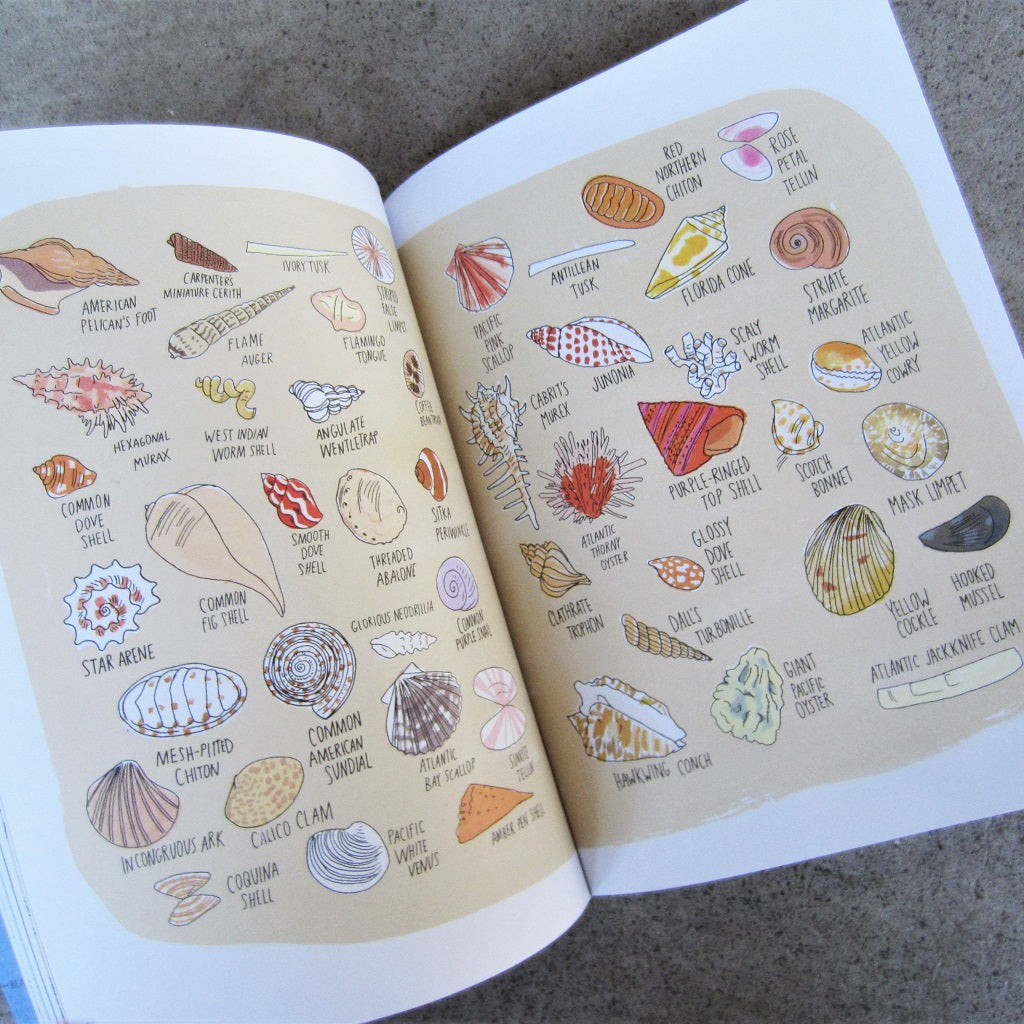 AMERICAN
PELICAN'S FOOT
CARPENTER'S
MINIATURE CERITH
IVORY TUSK
STRIPED
FALSE
LIMPET
FLAME
AUGER
FLAMINGO
TONGUE
HEXAGONAL
MURAX
WEST INDIAN
WORM SHELL
ANGULATE
WENTLETRAP
COFFEE
COMMON
DOVE
SHELL
COMMON
FIG SHELL
SMOOTH
DOVE
SHELL
THREADED
ABALONE
SITKA
PERIWINKLE
STAR ARENE
GLORIOUS NEODRILLIA
COMMON
PURPLE SNAIL
MESH-PITTED
CHITON
COMMON
AMERICAN
SUNDIAL
ATLANTIC
BAY SCALLOP
SUNRISE
TELLIN
INCONGRUOUS ARK
CALICO CLAM
PACIFIC
WHITE
VENUS
AMBER PEN SHELL
COQUINA
SHELL
RED
NORTHERN
CHITON
ROSE
PETAL
TELLIN
PACIFIC
PINK
SCALLOP
ANTILLEAN
TUSK
FLORIDA CONE
STRIATE
MARGARITE
JUNONIA
SCALY
WORM
SHELL
ATLANTIC
YELLOW
COWRY
CABRIT'S
MUREX
ATLANTIC
THORNY
OYSTER
PURPLE-RINGED
TOP SHELL
SCOTCH
BONNET
MASK LIMPET
CLATHRATE
TROPHON
GLOSSY
DOVE
SHELL
YELLOW
COCKLE
HOOKED
MUSSEL
DALL'S
TURBONILLE
HAWKWING CONCH
GIANT
PACIFIC
OYSTER
ATLANTIC JACKKNIFE CLAM